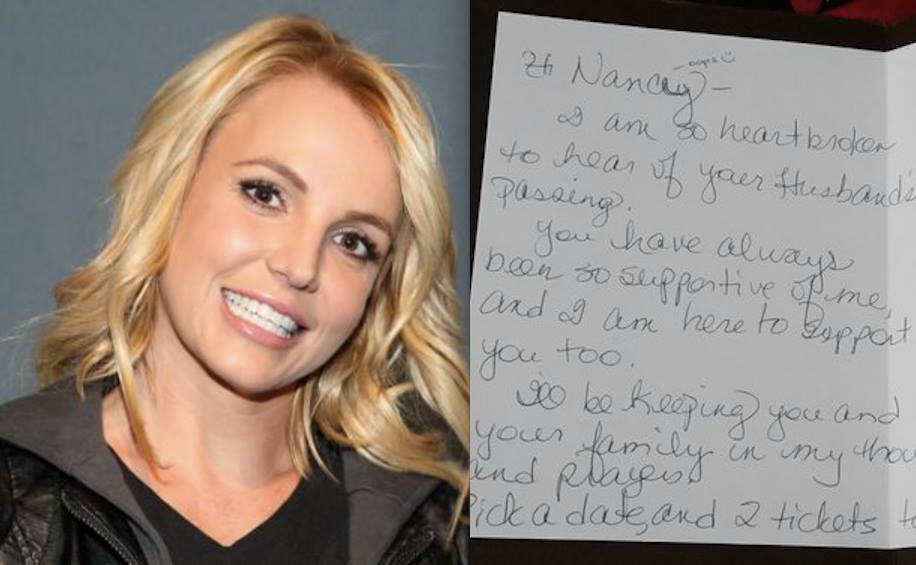 Hi Nancy –
oops
I am so heartbroken
to hear of your Husband's
passing.
You have always
been so supportive of me,
and I am here to support
you too.
I'll be keeping you and
your family in my thou
and prayers.
Pick a date, and 2 tickets to